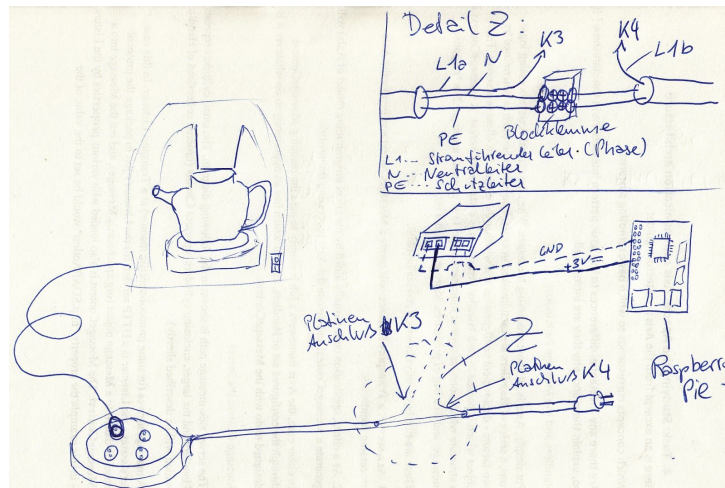 Detail Z:
K3
K4
L1a
N
L1b
PE
Blockklemme
L1... Stromführender Leiter (Phase)
N... Neutralleiter
PE... Schutzleiter
GND
+3V
Platinen
Anschluß K3
Z
Platinen
Anschluß K4
Pie